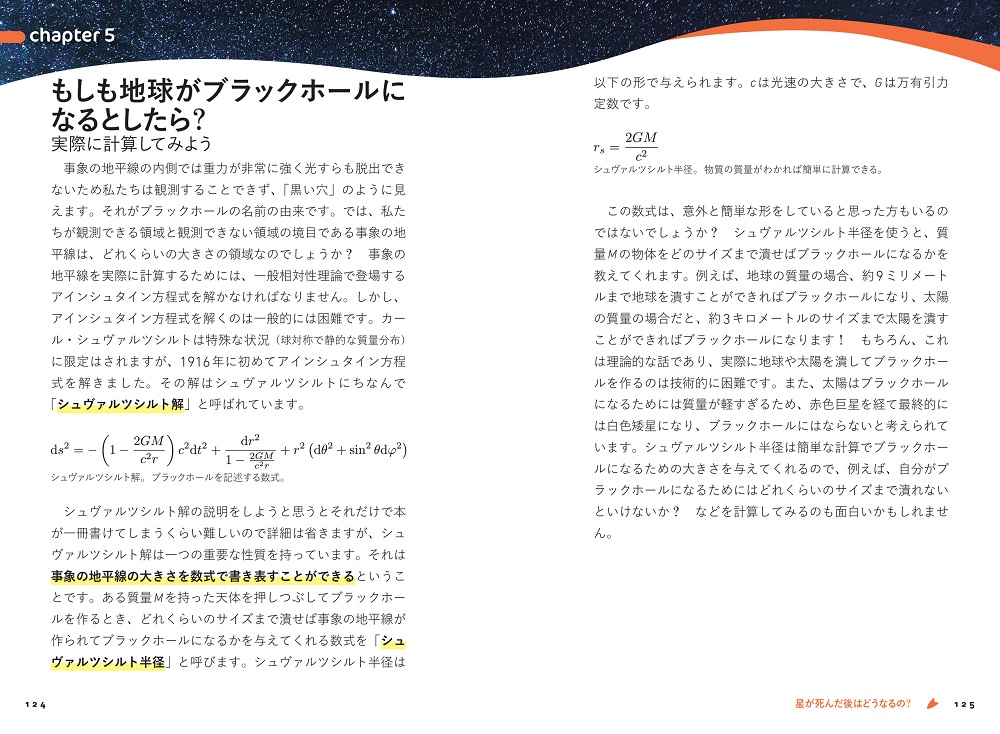 chapter 5
もしも地球がブラックホールに
なるとしたら?
実際に計算してみよう
事象の地平線の内側では重力が非常に強く光すらも脱出でき
ないため私たちは観測することできず、「黒い穴」のように見
えます。それがブラックホールの名前の由来です。では、私た
ちが観測できる領域と観測できない領域の境目である事象の地
平線は、どれくらいの大きさの領域なのでしょうか? 事象の
地平線を実際に計算するためには、一般相対性理論で登場する
アインシュタイン方程式を解かなければなりません。しかし、
アインシュタイン方程式を解くのは一般的には困難です。カー
ル・シュヴァルツシルトは特殊な状況(球対称で静的な質量分布)
に限定はされますが、1916年に初めてアインシュタイン方程
式を解きました。その解はシュヴァルツシルトにちなんで
「シュヴァルツシルト解」と呼ばれています。
ds² = −(1 − 2GM/c²r)c²dt² + dr²/(1 − 2GM/c²r) + r²(dθ² + sin²θdφ²)
シュヴァルツシルト解。ブラックホールを記述する数式。
シュヴァルツシルト解の説明をしようと思うとそれだけで本
が一冊書けてしまうくらい難しいので詳細は省きますが、シュ
ヴァルツシルト解は一つの重要な性質を持っています。それは
事象の地平線の大きさを数式で書き表すことができるというこ
とです。ある質量Mを持った天体を押しつぶしてブラックホー
ルを作るとき、どれくらいのサイズまで潰せば事象の地平線が
作られてブラックホールになるかを与えてくれる数式を「シュ
ヴァルツシルト半径」と呼びます。シュヴァルツシルト半径は
124
以下の形で与えられます。cは光速の大きさで、Gは万有引力
定数です。
rₛ = 2GM/c²
シュヴァルツシルト半径。物質の質量がわかれば簡単に計算できる。
この数式は、意外と簡単な形をしていると思った方もいるの
ではないでしょうか? シュヴァルツシルト半径を使うと、質
量Mの物体をどのサイズまで潰せばブラックホールになるかを
教えてくれます。例えば、地球の質量の場合、約9ミリメート
ルまで地球を潰すことができればブラックホールになり、太陽
の質量の場合だと、約3キロメートルのサイズまで太陽を潰す
ことができればブラックホールになります! もちろん、これ
は理論的な話であり、実際に地球や太陽を潰してブラックホー
ルを作るのは技術的に困難です。また、太陽はブラックホール
になるためには質量が軽すぎるため、赤色巨星を経て最終的に
は白色矮星になり、ブラックホールにはならないと考えられて
います。シュヴァルツシルト半径は簡単な計算でブラックホー
ルになるための大きさを与えてくれるので、例えば、自分がブ
ラックホールになるためにはどれくらいのサイズまで潰れない
といけないか? などを計算してみるのも面白いかもしれませ
ん。
星が死んだ後はどうなるの? 125